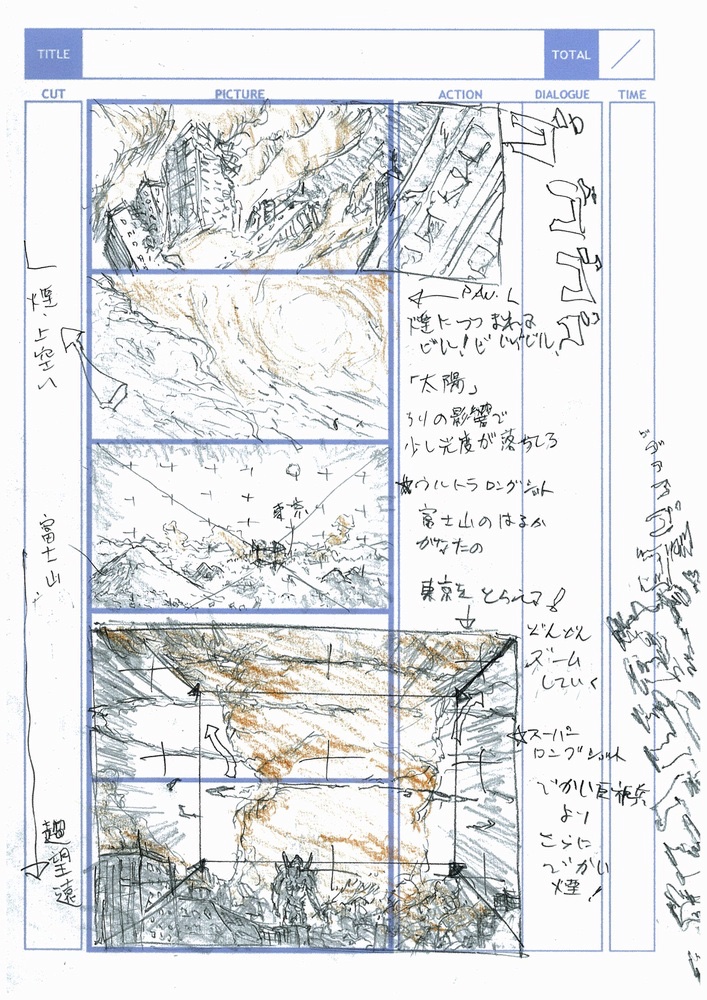 TITLE
TOTAL
CUT
PICTURE
ACTION
DIALOGUE
TIME
PAN. L
煙につつまれる
ビル!ビル!ビル!
「太陽」
チリの影響で
少し光度が落ちてる
ウルトラロングショット
富士山のはるか
かなたの
東京をとらえる!
どんどん
ズーム
していく
スーパー
ロングショット
でかい巨神兵
より
さらに
でかい
煙!
煙、上空へ
富士山
超望遠
東京
ゴゴゴゴ